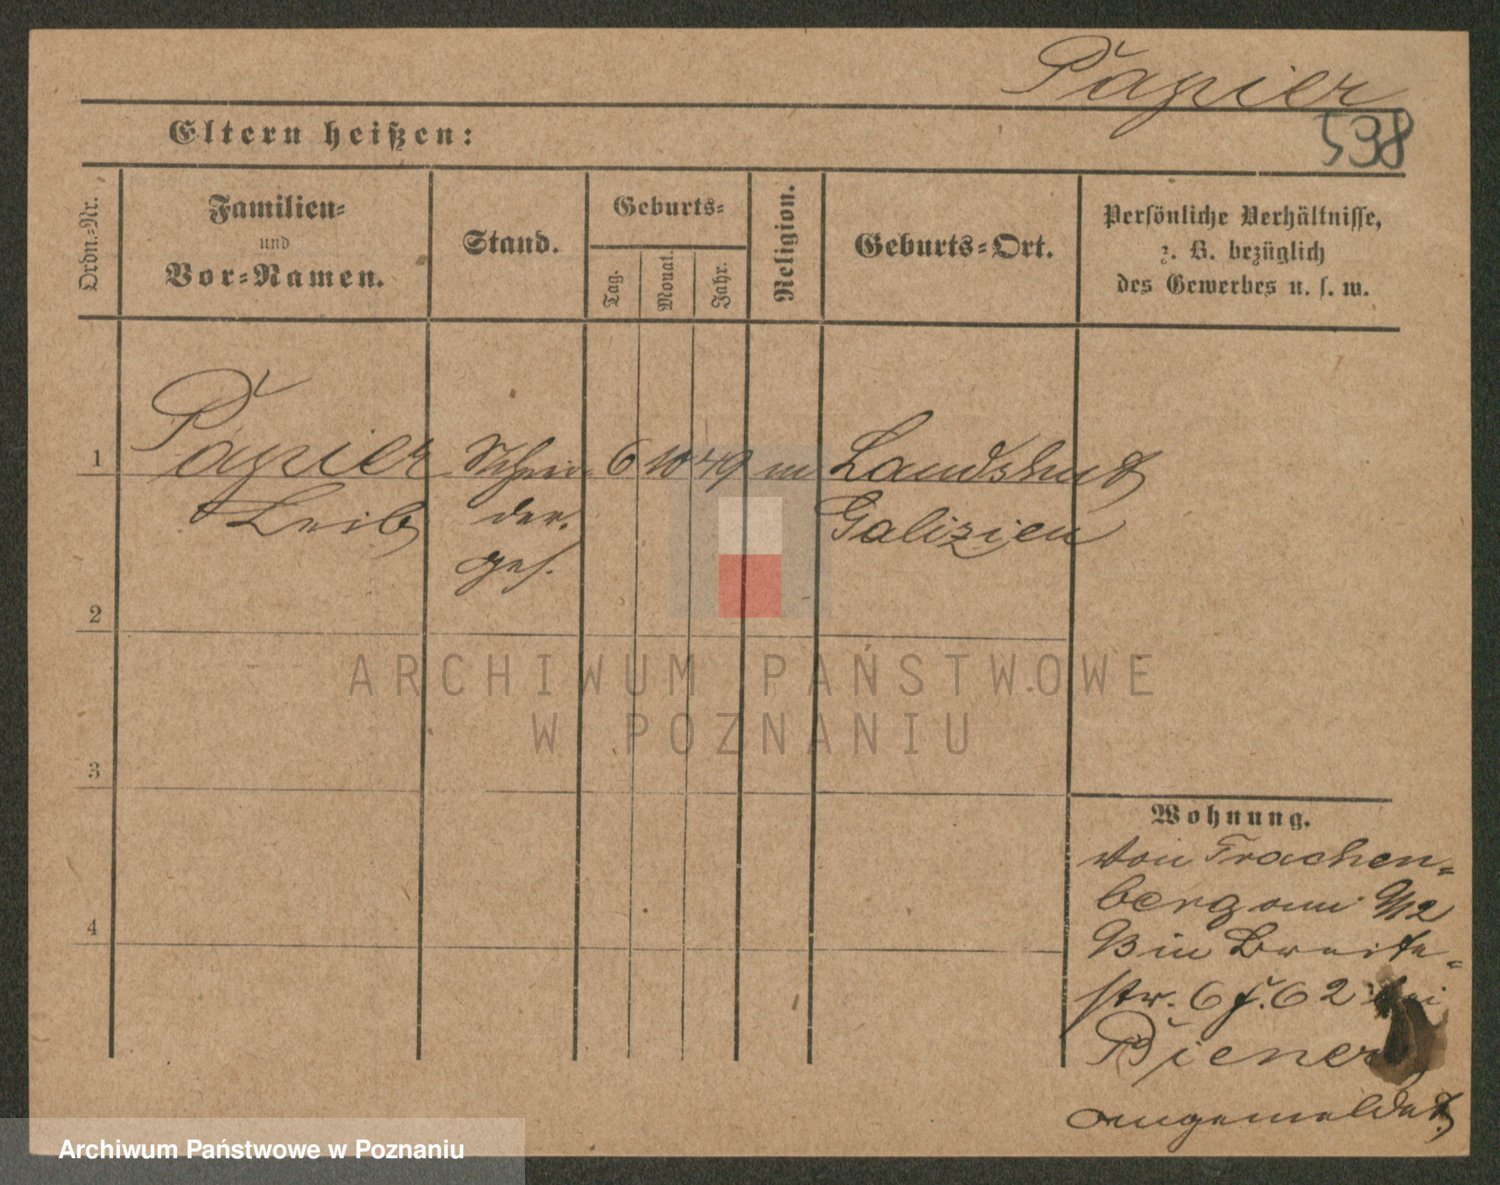 Papier
538
Eltern heißen:
Ordn.-Nr.
Familien-
und
Vor-Namen.
Stand.
Geburts-
Tag.
Monat.
Jahr.
Religion.
Geburts-Ort.
Persönliche Verhältnisse,
z. B. bezüglich
des Gewerbes u. s. w.
1
Papier Schnei- 6 10 49 m Landshut
Leib der. Galizien
ges.
2
ARCHIWUM PAŃSTWOWE
W POZNANIU
3
Wohnung.
von Trachen-
berg am
in Breite-
4
str. 6 J. 62 bei
Biener
angemeldet.
Archiwum Państwowe w Poznaniu